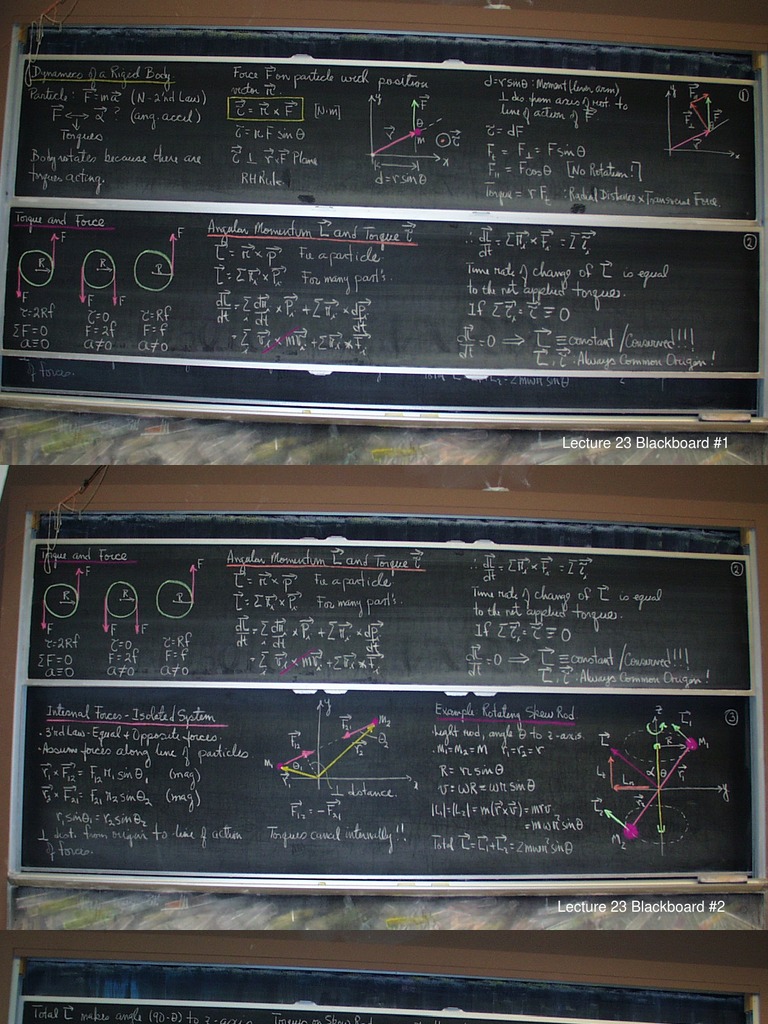 Dynamics of a Rigid Body
Particle: F⃗=ma⃗ (N-2'nd Law)
F⃗ ⟷ α⃗ ? (ang. accel)
Torques
Body rotates because there are
torques acting.
Force F⃗ on particle with position
vector r⃗.
τ⃗ = r⃗ × F⃗ [N·m]
τ = r F sin θ
τ⃗ ⊥ r⃗, F⃗ Plane
RH Rule
y
F⃗
θ
r⃗
m
τ⃗
x
d=r sin θ
d=r sin θ: Moment (lever arm)
⊥ dis from axis of rot. to
line of action of F⃗
τ = dF
F_t = F_⊥ = F sin θ
F_11 = F cos θ [No Rotation!]
Torque = r F_t : Radial Distance × Transverse Force.
①
y
r⃗
x
Torque and Force
F
R
F
τ=2Rf
ΣF=0
a=0
R
F
F
τ=0
F=2f
a≠0
F
R
τ=Rf
F=f
a≠0
Angular Momentum L⃗ and Torque τ⃗
L⃗ = r⃗ × p⃗ For a particle
L⃗ = Σ r⃗ᵢ × p⃗ᵢ For many part's.
dL⃗/dt = Σ dr⃗ᵢ/dt × p⃗ᵢ + Σ r⃗ᵢ × dp⃗ᵢ/dt
= Σ v⃗ᵢ × mv⃗ᵢ + Σ r⃗ᵢ × F⃗ᵢ
∴ dL⃗/dt = Σ r⃗ᵢ × F⃗ᵢ = Σ τ⃗ᵢ
Time rate of change of L⃗ is equal
to the net applied torques.
If Σ τ⃗ᵢ = τ⃗ ≡ 0
dL⃗/dt = 0 ⇒ L⃗ ≡ constant / Conserved!!!!
L⃗, τ⃗: Always Common Origin!
②
of forces.
Lecture 23 Blackboard #1
Torque and Force
F
R
F
τ=2Rf
ΣF=0
a=0
R
F
F
τ=0
F=2f
a≠0
F
R
τ=Rf
F=f
a≠0
Angular Momentum L⃗ and Torque τ⃗
L⃗ = r⃗ × p⃗ For a particle
L⃗ = Σ r⃗ᵢ × p⃗ᵢ For many part's.
dL⃗/dt = Σ dr⃗ᵢ/dt × p⃗ᵢ + Σ r⃗ᵢ × dp⃗ᵢ/dt
= Σ v⃗ᵢ × mv⃗ᵢ + Σ r⃗ᵢ × F⃗ᵢ
∴ dL⃗/dt = Σ r⃗ᵢ × F⃗ᵢ = Σ τ⃗ᵢ
Time rate of change of L⃗ is equal
to the net applied torques.
If Σ τ⃗ᵢ = τ⃗ ≡ 0
dL⃗/dt = 0 ⇒ L⃗ ≡ constant / Conserved!!!!
L⃗, τ⃗: Always Common Origin!
②
Internal Forces - Isolated System
· 3'rd Law - Equal + Opposite forces.
· Assume forces along line of particles.
r⃗₁ × F⃗₁₂ = F₁₂ r₁ sin θ₁ (mag)
r⃗₂ × F⃗₂₁ = F₂₁ r₂ sin θ₂ (mag)
r₁ sin θ₁ = r₂ sin θ₂
⊥ dist. from origin to line of action
of forces.
y
M₂
F⃗₂₁
θ₂
F⃗₁₂
M₁
θ₁
r⃗₂
r⃗₁
x
⊥ distance.
F⃗₁₂ = -F⃗₂₁
Torques cancel internally!!
Example: Rotating Skew Rod
· Light rod, angle θ to z-axis.
· M₁=M₂=M r₁=r₂=r
R = r sin θ
v = ωR = ωr sin θ
|L₁|=|L₂| = m(r⃗×v⃗) = mrv
= mωr² sin θ
Total L⃗=L⃗₁+L⃗₂ = 2mωr² sin θ
③
z
L⃗₁
M₁
R
L⃗
α
θ
r⃗₁
y
r⃗₂
L⃗₂
M₂
Lecture 23 Blackboard #2
Total L⃗ makes angle (90-θ) to z-axis
Torques on Skew Rod